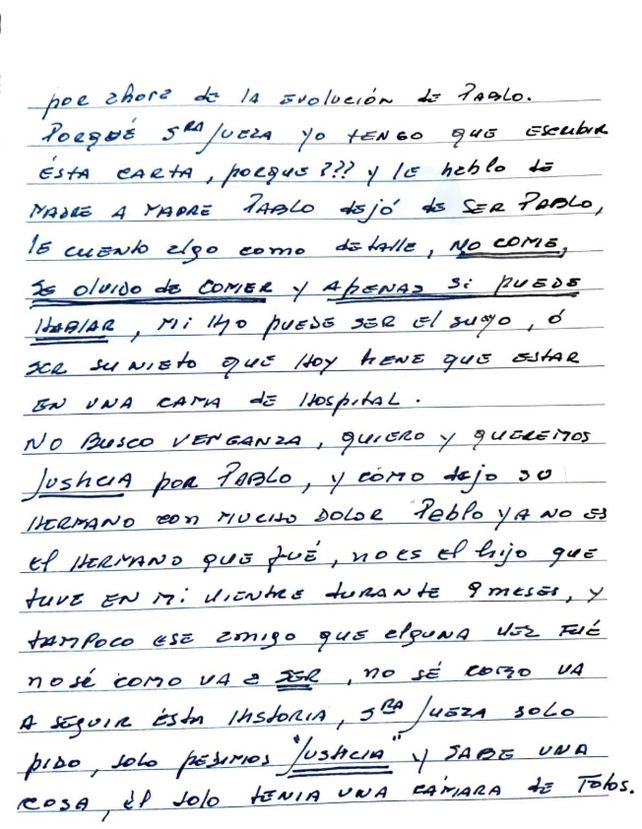 por ahora de la evolución de Pablo.
Porqué Sra Jueza yo tengo que escribir
ésta carta, porque??? y le hablo de
madre a madre Pablo dejó de ser Pablo,
le cuento algo como detalle, no come,
se olvido de comer y apenas si puede
hablar, mi hijo puede ser el suyo, ó
ser su nieto que hoy tiene que estar
en una cama de hospital.
No busco venganza, quiero y queremos
Justicia por Pablo, y cómo dejo su
hermano con mucho dolor Pablo ya no es
el hermano que fué, no es el hijo que
tuve en mi vientre durante 9 meses, y
tampoco ese amigo que alguna vez fué
no sé como va a ser, no sé como va
a seguir ésta historia, Sra Jueza solo
pido, solo pedimos "Justicia" y sabe una
cosa, él solo tenia una cámara de fotos.